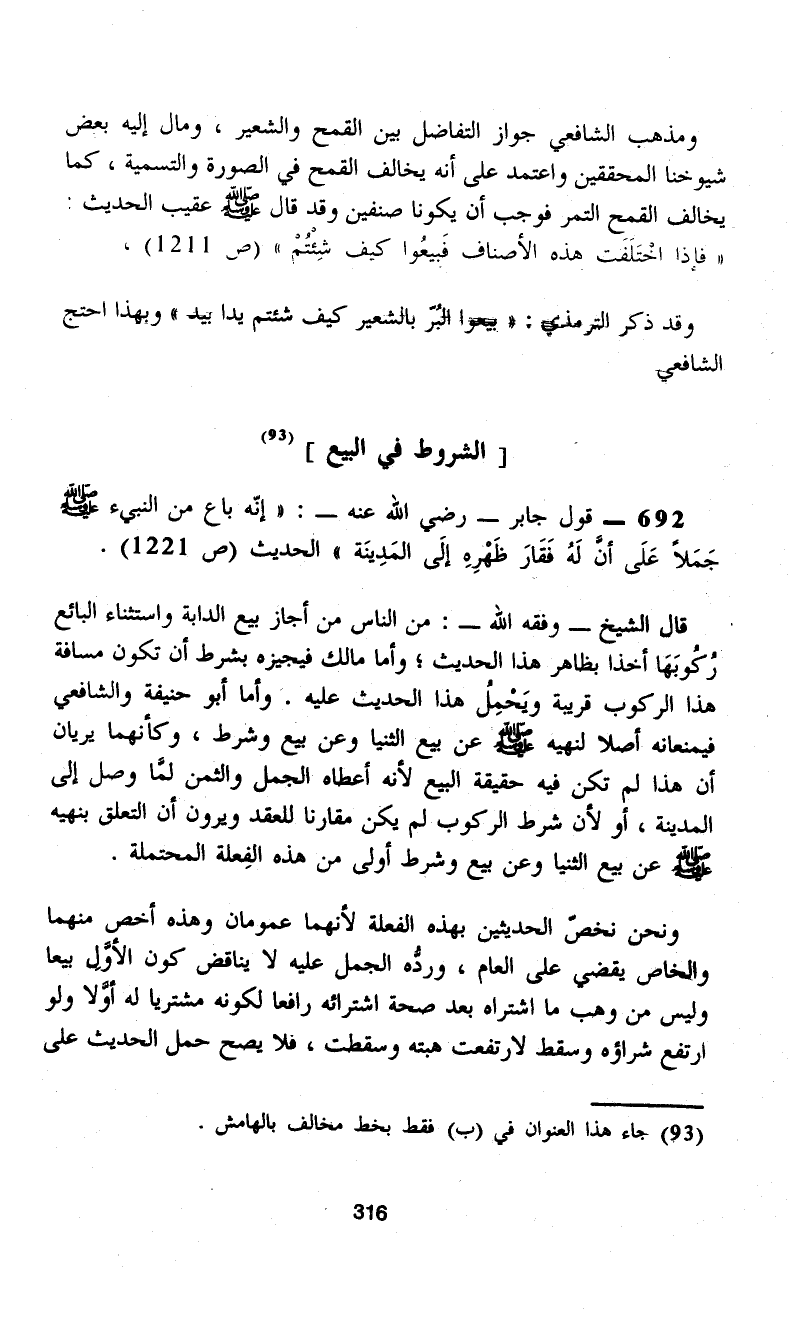 ومذهب الشافعي جواز التفاضل بين القمح والشعير ، ومال إليه بعض
شيوخنا المحققين واعتمد على أنه يخالف القمح في الصورة والتسمية ، كما
يخالف القمح التمر فوجب أن يكونا صنفين وقد قال ﷺ عقيب الحديث :
« فإذا اخْتَلَفَت هذه الأصناف فَبيعُوا كيف شِئْتُمْ » (ص 1211) ،
وقد ذكر الترمذي : « بيعوا البُرّ بالشعير كيف شئتم يدا بيد » وبهذا احتج
الشافعي
[ الشروط في البيع ] (93)
692 — قول جابر — رضي الله عنه — : « إنّه باع من النبيء ﷺ
جَمَلاً عَلَى أنَّ لَهُ فَقَارَ ظَهْرِهِ إلَى المَدِينَة » الحديث (ص 1221) .
قال الشيخ — وفقه الله — : من الناس من أجاز بيع الدابة واستثناء البائع
رُكُوبَهَا أخذا بظاهر هذا الحديث ؛ وأما مالك فيجيزه بشرط أن تكون مسافة
هذا الركوب قريبة ويَحْمِلُ هذا الحديث عليه . وأما أبو حنيفة والشافعي
فيمنعانه أصلا لنهيه ﷺ عن بيع الثنيا وعن بيع وشرط ، وكأنهما يريان
أن هذا لم تكن فيه حقيقة البيع لأنه أعطاه الجمل والثمن لمَّا وصل إلى
المدينة ، أو لأن شرط الركوب لم يكن مقارنا للعقد ويرون أن التعلق بنهيه
ﷺ عن بيع الثنيا وعن بيع وشرط أولى من هذه الفِعلة المحتملة .
ونحن نخصّ الحديثين بهذه الفعلة لأنهما عمومان وهذه أخص منهما
والخاص يقضي على العام ، وردُّه الجمل عليه لا يناقض كون الأوَّلِ بيعا
وليس من وهب ما اشتراه بعد صحة اشترائه رافعا لكونه مشتريا له أوَّلا ولو
ارتفع شراؤه وسقط لارتفعت هبته وسقطت ، فلا يصح حمل الحديث على
(93) جاء هذا العنوان في (ب) فقط بخط مخالف بالهامش .
316